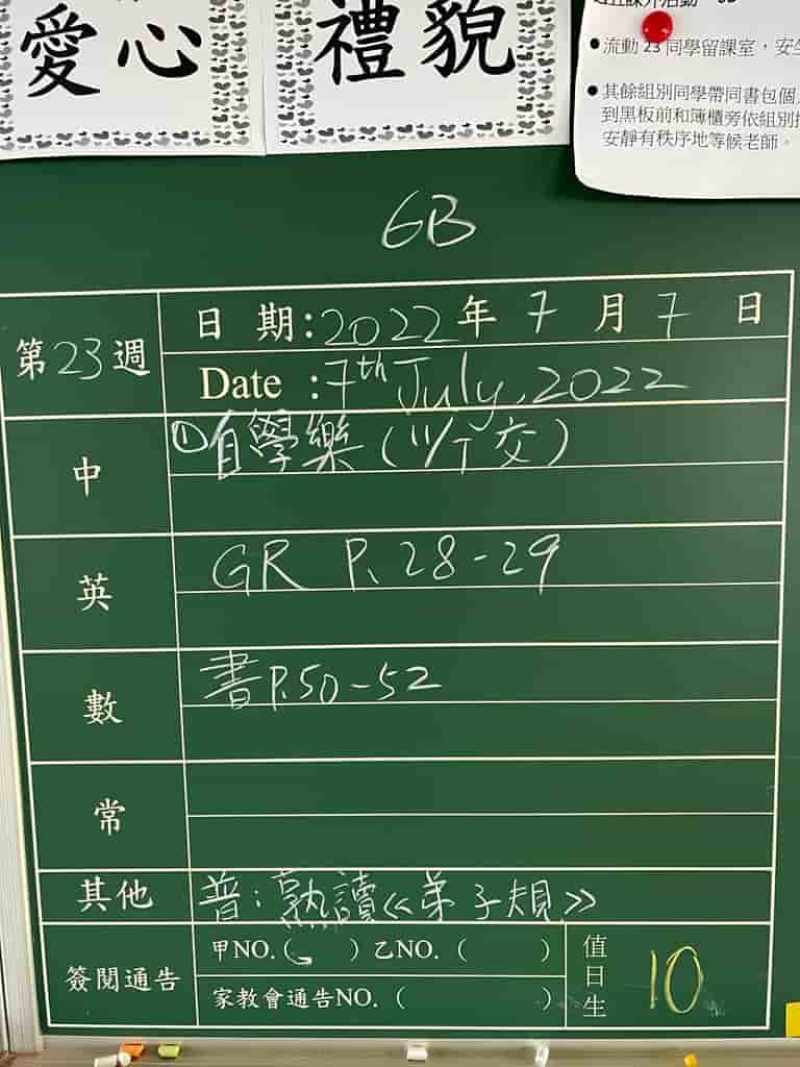 愛心
禮貌
流動 23 同學留課室,安
其餘組別同學帶同書包個
到黑板前和簿櫃旁依組別
安靜有秩序地等候老師。
6B
第23週
日期:2022年7月7日
Date :7th July, 2022
中
①自學樂(11/7交)
英
GR P. 28-29
數
書P.50-52
常
其他
普:熟讀《弟子規》
簽閱通告
甲NO.( ) 乙NO. ( )
家教會通告NO. ( )
值日生
10